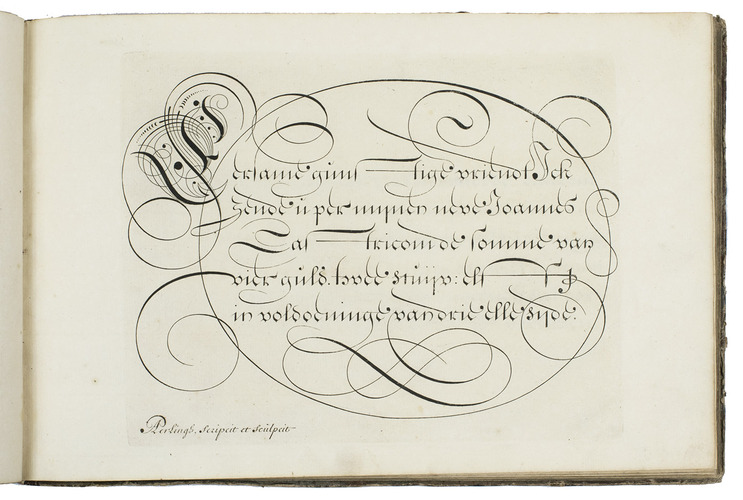 Eersame guns tige vriendt Ick
zende u per mijnen neve Joannes
Cas tricom de somme van
vier guld. twee stuijv: els
in voldoeninge van drie elle zijde.
Perlingh. scripcit et sculpcit